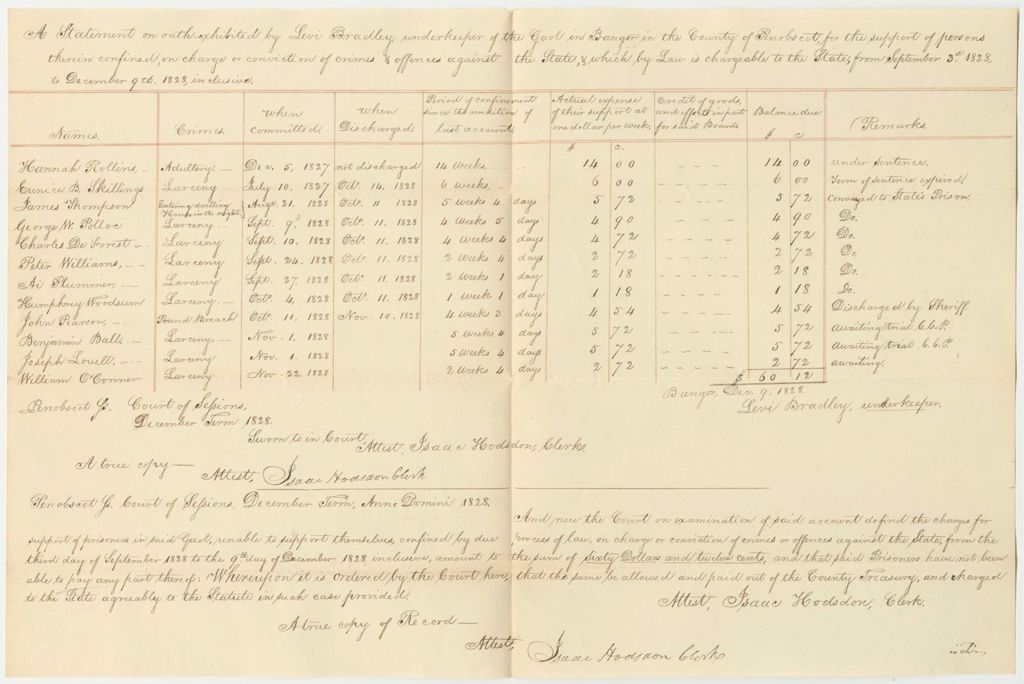 A Statement on oath exhibited by Levi Bradley underkeeper of the Gaol in Bangor in the County of Penobscot, for the support of persons
therein confined, on charge or conviction of crimes & offences against the State, & which by Law is chargeable to the State, from September 3rd 1828,
to December 9th 1828, inclusive.
Names. Crimes. When committed. When Discharged. Period of confinement since the rendition of last account. Actual expense of their support at one dollar per week. Credit of goods and effects in part for said Board. Balance due $ c Remarks
$ c.
Hannah Rollins, Adultery. Dec. 5, 1827 not discharged 14 weeks 14 00 14 00 under sentence.
Eunice B. Skillings Larceny. July 10, 1827 Oct. 14, 1828 6 weeks, 6 00 6 00 Term of sentence expired
James Thompson Entering dwelling House in the night} Augt. 21, 1828 Oct. 11 1828 5 weeks 4 days 5 72 5 72 conveyed to State's Prison
George W. Polloc Larceny Sept. 9th 1828 Oct. 11, 1828 4 weeks 5 days 4 90 4 90 Do.
Charles De Forest Larceny Sept. 10, 1828 Oct. 11, 1828 4 weeks 4 days 4 72 4 72 Do.
Peter Williams, Larceny Sept. 24, 1828 Oct. 11, 1828 2 weeks 4 days 2 72 2 72 Do.
Ai Plummer Larceny Sept. 27, 1828 Oct. 11, 1828 2 weeks 1 day 2 18 2 18 Do.
Humphrey Woodsum Larceny. Oct. 4, 1828 Oct. 11, 1828 1 week 1 day 1 18 1 18 Do.
John Pearson, Pound Breach Oct. 11, 1828 Nov. 10, 1828 4 weeks 3 days 4 54 4 54 Discharged by Sheriff.
Benjamin Ball, Larceny Nov. 1, 1828 5 weeks 4 days 5 72 5 72 awaiting trial C.C.P.
Joseph Lowell, Larceny Nov. 1. 1828 5 weeks 4 days 5 72 5 72 awaiting trial C.C.P.
William O'Conner Larceny Nov. 22, 1828 2 weeks 4 days 2 72 2 72 awaiting.
$ 60 12
Bangor, Dec. 9, 1828.
Levi Bradley, underkeeper.
Penobscot Ss. Court of Sessions,
December Term 1828.
Sworn to in Court,
Attest, Isaac Hodsdon, Clerk.
A true copy—
Attest, Isaac Hodsdon Clerk
Penobscot Ss. Court of Sessions, December Term, Anno Domini 1828.
And now the Court on examination of said account do find the charges for
support of prisoners in said Gaol, unable to support themselves, confined by due process of law, on charge or conviction of crimes or offences against the State, from the
third day of September 1828 to the 9th day of December 1828 inclusive, amount to the sum of Sixty Dollars and twelve cents, and that said Prisoners have not been
able to pay any part thereof: Whereupon it is ordered by the Court here, that the same be allowed and paid out of the County Treasury, and charged
to the State agreeably to the Statute in such case provided.
Attest, Isaac Hodsdon, Clerk.
A true copy of Record—
Attest, Isaac Hodsdon Clerk